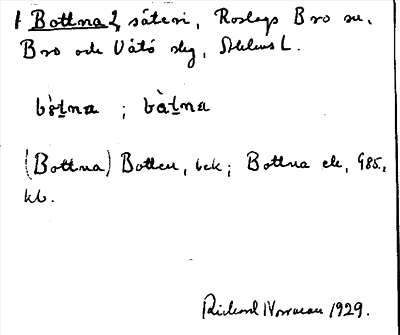 1 Bottna 2, säteri, Roslags Bro sn,
Bro och Vätö slg, Sthlms L.
bòtna ; bàtna
(Bottna) Botten, bek; Bottna ek, 985,
kb.
Rickard 1929.